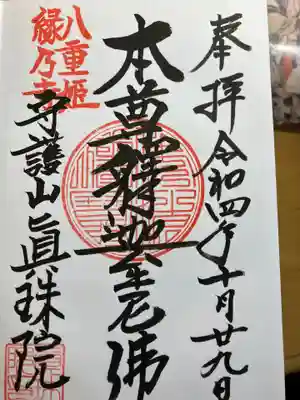 奉拝 令和四年十月廿九日
本尊釋迦牟尼佛
八重姫
縁乃寺
守護山眞珠院